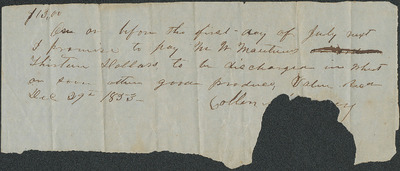 $13.00
One or before the first day of July next
I promise to pay M W
Thirteen Dollars to be discharged in wheat
or some other good produce, Value Recd
Dec 27th 1853